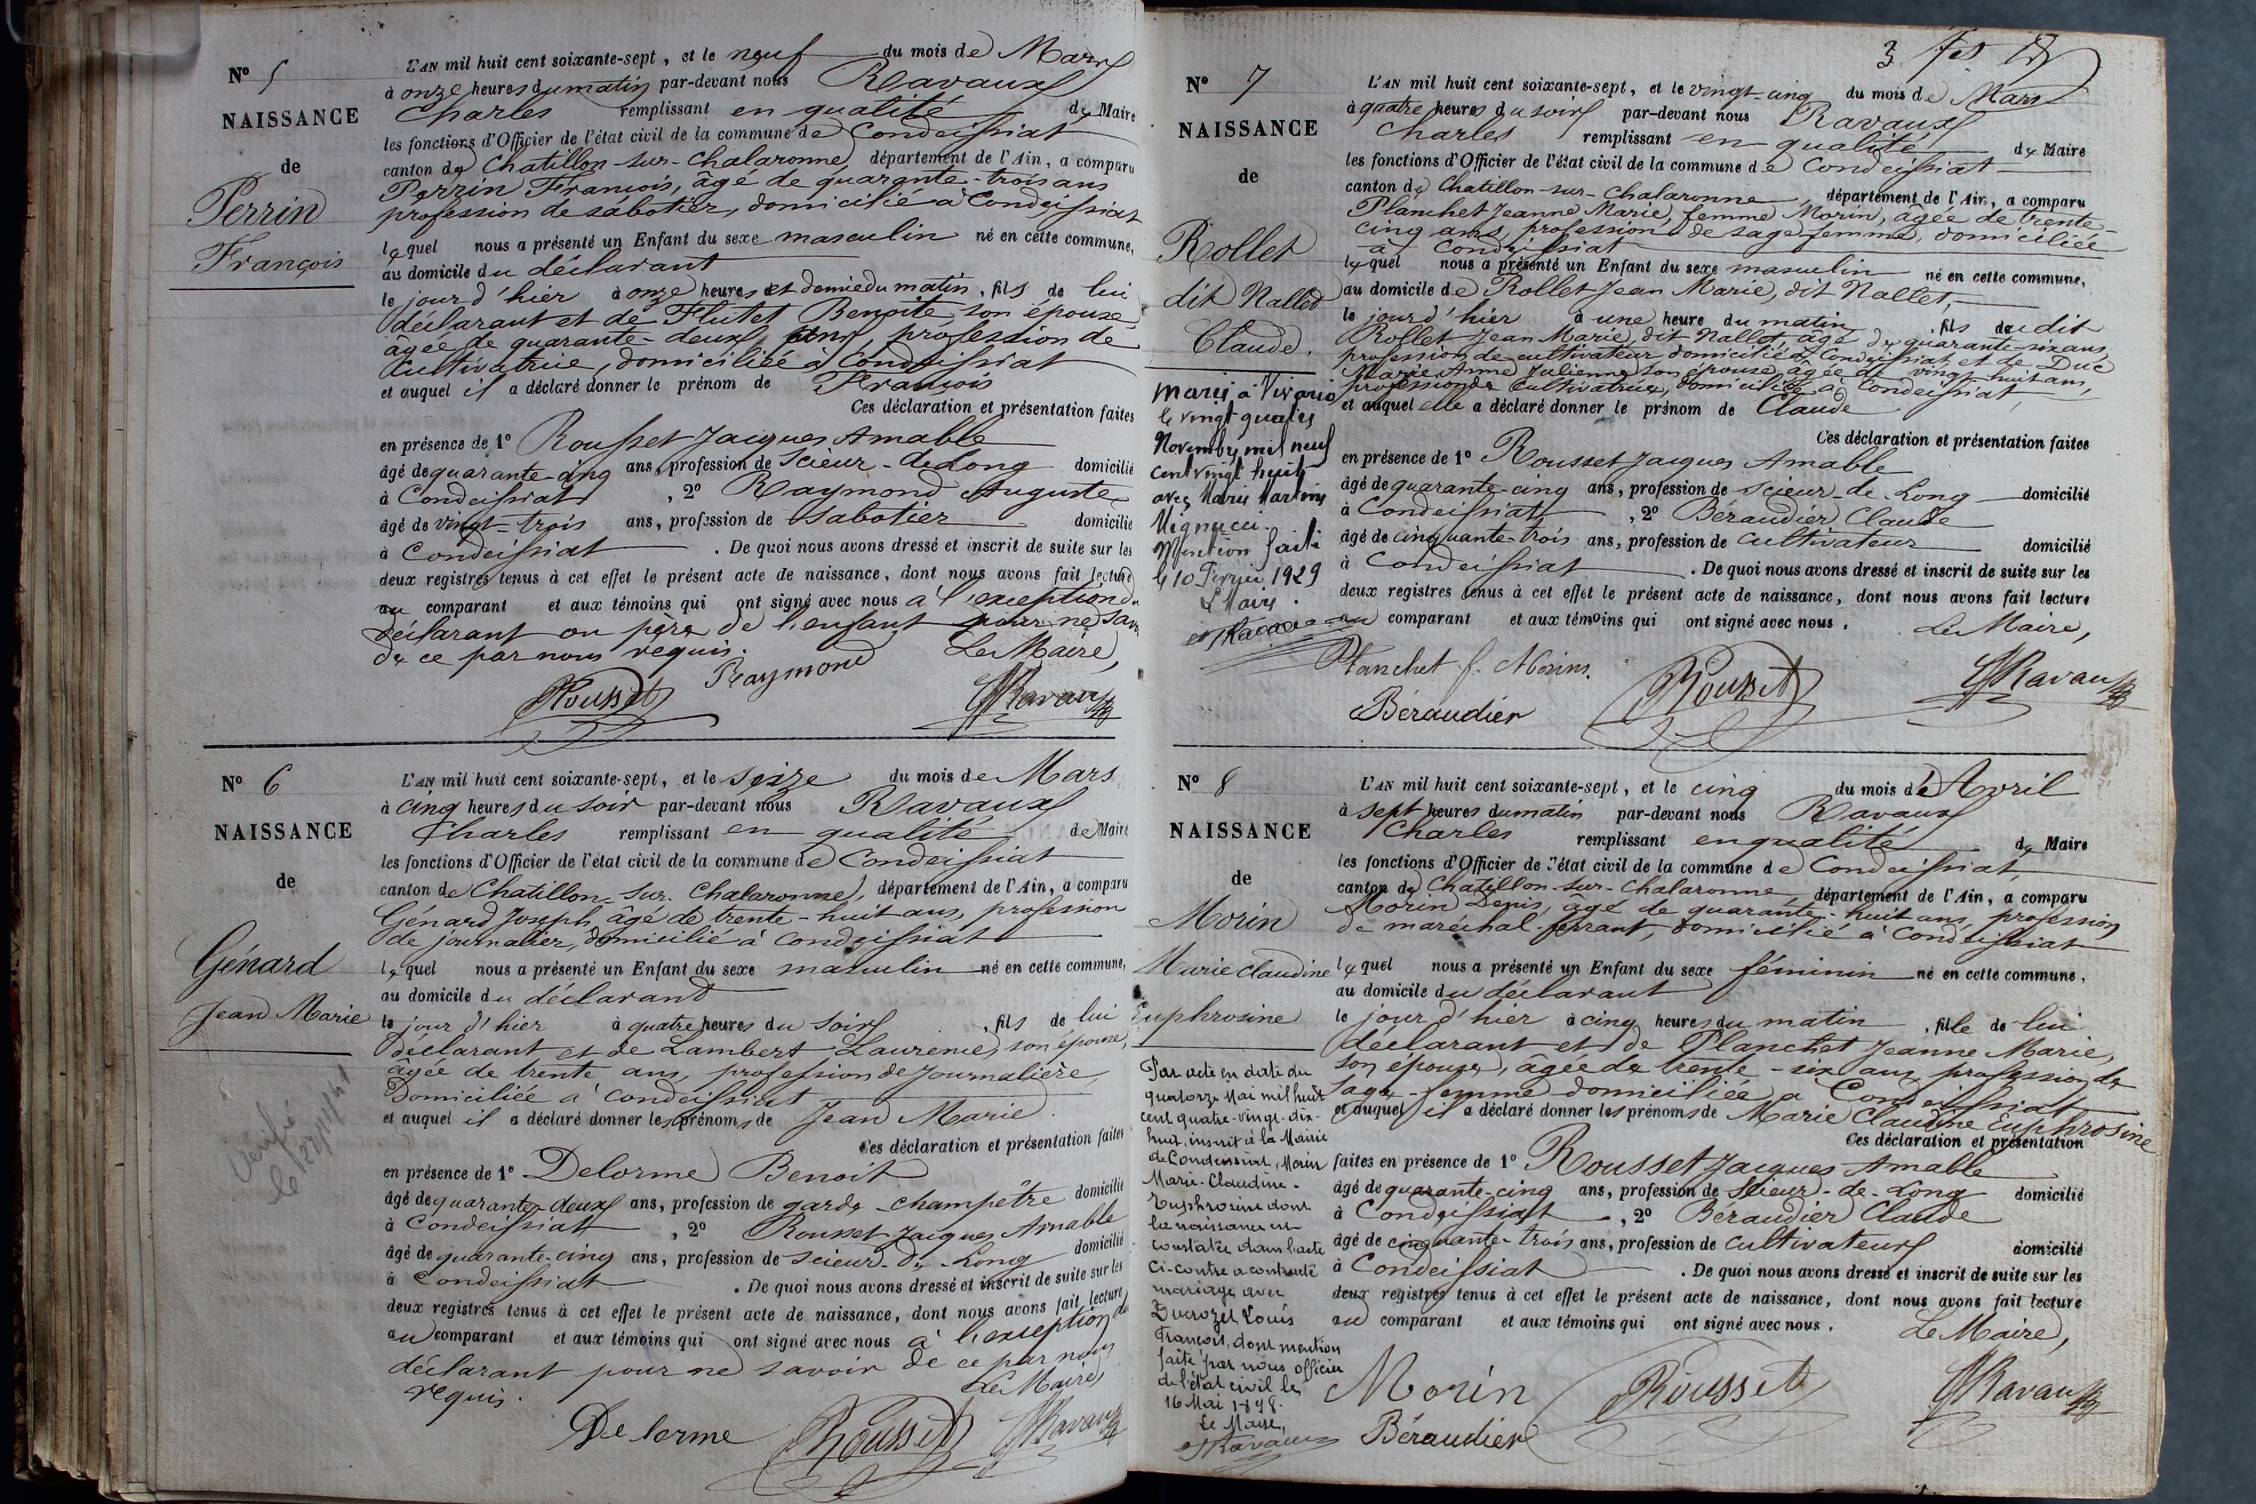 N° 5
NAISSANCE
de
Perrin
François
L'AN mil huit cent soixante-sept, et le neuf du mois de Mars
à onze heures du matin par-devant nous Ravaux
Charles remplissant en qualité de Maire
les fonctions d'Officier de l'état civil de la commune de Condeissiat
canton de Chatillon-sur-Chalaronne, département de l'Ain, a comparu
Perrin François, âgé de quarante-trois ans
profession de sabotier, domicilié à Condeissiat
lequel nous a présenté un Enfant du sexe masculin né en cette commune,
au domicile du déclarant
le jour d'hier à onze heures et demie du matin, fils de lui
déclarant et de Flutet Benoite son épouse
âgée de quarante-deux ans, profession de
cultivatrice, domiciliée à Condeissiat
et auquel il a déclaré donner le prénom de François
Ces déclaration et présentation faites
en présence de 1° Rousset Jacques Amable
âgé de quarante-cinq ans, profession de Scieur-de-Long domicilié
à Condeissiat, 2° Raymond Auguste
âgé de vingt-trois ans, profession de Sabotier domicilié
à Condeissiat. De quoi nous avons dressé et inscrit de suite sur les
deux registres tenus à cet effet le présent acte de naissance, dont nous avons fait lecture
au comparant et aux témoins qui ont signé avec nous à l'exception du
déclarant ou père de l'enfant pour ne savoir
de ce par nous requis. Le Maire,
Rousset Raymond Ravaux
N° 6
NAISSANCE
de
Génard
Jean Marie
Vérifié
le
L'AN mil huit cent soixante-sept, et le seize du mois de Mars
à cinq heures du soir par-devant nous Ravaux
Charles remplissant en qualité de Maire
les fonctions d'Officier de l'état civil de la commune de Condeissiat
canton de Chatillon-sur-Chalaronne, département de l'Ain, a comparu
Génard Joseph âgé de trente-huit ans, profession
de journalier, domicilié à Condeissiat
lequel nous a présenté un Enfant du sexe masculin né en cette commune,
au domicile du déclarant
le jour d'hier à quatre heures du soir, fils de lui
déclarant et de Lambert Laurence, son épouse,
âgée de trente ans, profession de journalière
domiciliée à Condeissiat
et auquel il a déclaré donner les prénoms de Jean Marie.
Ces déclaration et présentation faites
en présence de 1° Delorme Benoit
âgé de quarante-deux ans, profession de garde-champêtre domicilié
à Condeissiat, 2° Rousset Jacques Amable
âgé de quarante-cinq ans, profession de scieur-de-Long domicilié
à Condeissiat. De quoi nous avons dressé et inscrit de suite sur les
deux registres tenus à cet effet le présent acte de naissance, dont nous avons fait lecture
au comparant et aux témoins qui ont signé avec nous à l'exception du
déclarant pour ne savoir de ce par nous
requis. Le Maire,
Delorme Rousset Ravaux
3
N° 7
NAISSANCE
de
Rollet
dit Nallet
Claude.
Marié à
le vingt quatre
Novembre mil neuf
cent vingt huit
avec Marie
Mention faite
le 10 Février 1929
Le Maire.
L'AN mil huit cent soixante-sept, et le vingt-cinq du mois de Mars
à quatre heures du soir par-devant nous Ravaux
Charles remplissant en qualité de Maire
les fonctions d'Officier de l'état civil de la commune de Condeissiat
canton de Chatillon-sur-Chalaronne, département de l'Ain, a comparu
Planchet Jeanne Marie, femme Morin, âgée de trente-
cinq ans, profession de sage-femme, domiciliée
à Condeissiat
lequel nous a présenté un Enfant du sexe masculin né en cette commune,
au domicile de Rollet Jean Marie, dit Nallet,
le jour d'hier à une heure du matin, fils dudit
Rollet Jean Marie, dit Nallet, âgé de quarante-six ans,
profession de cultivateur domicilié à Condeissiat et de Duc
Marie Anne Julienne son épouse, âgée de vingt-huit ans,
profession de cultivatrice, domiciliée à Condeissiat,
et auquel elle a déclaré donner le prénom de Claude
Ces déclaration et présentation faites
en présence de 1° Rousset Jacques Amable
âgé de quarante-cinq ans, profession de scieur-de-Long domicilié
à Condeissiat, 2° Béraudier Claude
âgé de cinquante-trois ans, profession de cultivateur domicilié
à Condeissiat. De quoi nous avons dressé et inscrit de suite sur les
deux registres tenus à cet effet le présent acte de naissance, dont nous avons fait lecture
au comparant et aux témoins qui ont signé avec nous. Le Maire,
Planchet f. Morin. Rousset Ravaux
Béraudier
N° 8
NAISSANCE
de
Morin
Marie Claudine
Euphrosine
Par acte en date du
quatorze Mai mil huit
cent quatre-vingt-dix-
huit, inscrit à la Mairie
de Condeissiat, Morin
Marie-Claudine-
Euphrosine dont
la naissance est
constatée dans l'acte
ci-contre a contracté
mariage avec
Ducrozet Louis
François, dont mention
faite par nous officier
de l'état civil le
16 Mai 1898.
Le Maire,
Ravaux
L'AN mil huit cent soixante-sept, et le cinq du mois d'Avril
à sept heures du matin par-devant nous Ravaux
Charles remplissant en qualité de Maire
les fonctions d'Officier de l'état civil de la commune de Condeissiat,
canton de Chatillon-sur-Chalaronne, département de l'Ain, a comparu
Morin Denis, âgé de quarante-huit ans, profession
de maréchal-ferrant, domicilié à Condeissiat
lequel nous a présenté un Enfant du sexe féminin né en cette commune,
au domicile du déclarant
le jour d'hier à cinq heures du matin, fille de lui
déclarant et de Planchet Jeanne Marie,
son épouse, âgée de trente-six ans profession de
sage-femme domiciliée à Condeissiat
et auquel il a déclaré donner les prénoms de Marie Claudine Euphrosine
Ces déclaration et présentation
faites en présence de 1° Rousset Jacques Amable
âgé de quarante-cinq ans, profession de Scieur-de-Long domicilié
à Condeissiat, 2° Béraudier Claude
âgé de cinquante-trois ans, profession de cultivateur domicilié
à Condeissiat. De quoi nous avons dressé et inscrit de suite sur les
deux registres tenus à cet effet le présent acte de naissance, dont nous avons fait lecture
au comparant et aux témoins qui ont signé avec nous. Le Maire,
Morin Rousset Ravaux
Béraudier